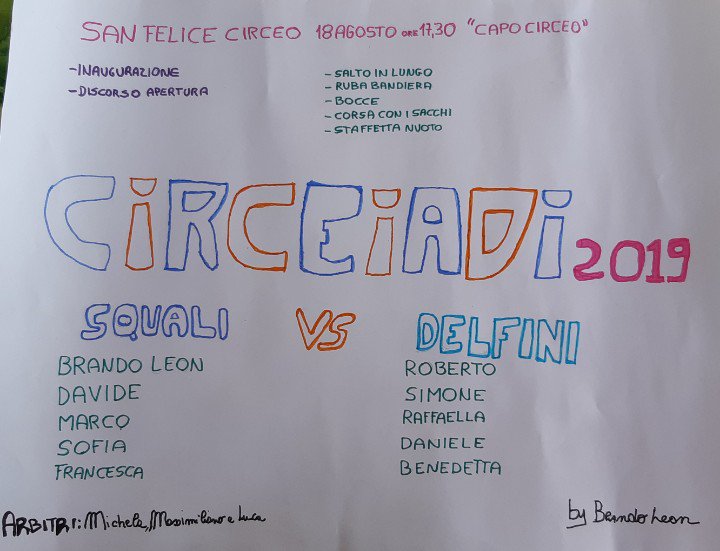 SAN FELICE CIRCEO 18 AGOSTO ORE 17,30 "CAPO CIRCEO"
- INAUGURAZIONE
- DISCORSO APERTURA
- SALTO IN LUNGO
- RUBA BANDIERA
- BOCCE
- CORSA CON I SACCHI
- STAFFETTA NUOTO
CiRCEiADi 2019
SQUALI VS DELFINI
BRANDO LEON
DAVIDE
MARCO
SOFIA
FRANCESCA
ROBERTO
SIMONE
RAFFAELLA
DANIELE
BENEDETTA
ARBITRI: Michele, Massimiliano e Luca
by Brando Leon